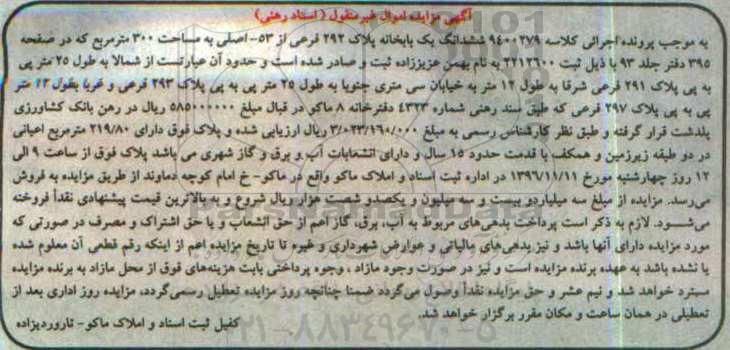 آگهی مزایده اموال غیرمنقول (اسناد رهنی)
به موجب پرونده اجرائی کلاسه ۹۴۰۰۲۷۹ ششدانگ یک بابخانه پلاک ۲۹۲ فرعی از ۵۳- اصلی به مساحت ۳۰۰ مترمربع که در صفحه
۳۹۵ دفتر جلد ۹۳ با ذیل ثبت ۲۲۱۲۶۰۰ به نام بهمن عزیززاده ثبت و صادر شده است و حدود آن عبارتست از شمالا به طول ۲۵ متر پی
به پی پلاک ۲۹۱ فرعی شرقا به طول ۱۲ متر به خیابان سی متری جنوبا به طول ۲۵ متر پی به پی پلاک ۲۹۳ فرعی و غربا بطول ۱۲ متر
پی به پی پلاک ۲۹۷ فرعی که طبق سند رهنی شماره ۴۳۲۳ دفترخانه ۸ ماکو در قبال مبلغ ۵۸۵۰۰۰۰۰۰ ریال در رهن بانک کشاورزی
پلدشت قرار گرفته و طبق نظر کارشناس رسمی به مبلغ ۳/۰۲۳/۱۶۰/۰۰۰ ریال ارزیابی شده و پلاک فوق دارای ۲۱۹/۸۰ مترمربع اعیانی
در دو طبقه زیرزمین و همکف با قدمت حدود ۱۵ سال و دارای انشعابات آب و برق و گاز شهری می باشد پلاک فوق از ساعت ۹ الی
۱۲ روز چهارشنبه مورخ ۱۳۹۶/۱۱/۱۱ در اداره ثبت اسناد و املاک ماکو واقع در ماکو- خ امام کوچه دماوند از طریق مزایده به فروش
می‌رسد. مزایده از مبلغ سه میلیاردو بیست و سه میلیون و یکصدو شصت هزار ریال شروع و به بالاترین قیمت پیشنهادی نقداً فروخته
می‌شود. لازم به ذکر است پرداخت بدهی‌های مربوط به آب، برق، گاز اعم از حق انشعاب و یا حق اشتراک و مصرف در صورتی که
مورد مزایده دارای آنها باشد و نیز بدهی‌های مالیاتی و عوارض شهرداری و غیره تا تاریخ مزایده اعم از اینکه رقم قطعی آن معلوم شده
یا نشده باشد به عهده برنده مزایده است و نیز در صورت وجود مازاد ، وجوه پرداختی بابت هزینه‌های فوق از محل مازاد به برنده مزایده
مسترد خواهد شد و نیم عشر و حق مزایده نقداً وصول می‌گردد ضمنا چنانچه روز مزایده تعطیل رسمی‌گردد، مزایده روز اداری بعد از
تعطیلی در همان ساعت و مکان مقرر برگزار خواهد شد.
کفیل ثبت اسناد و املاک ماکو- تاروردیزاده
ParsNamadData
۰۲۱-۸۸۳۴۹۶۷۰-۵